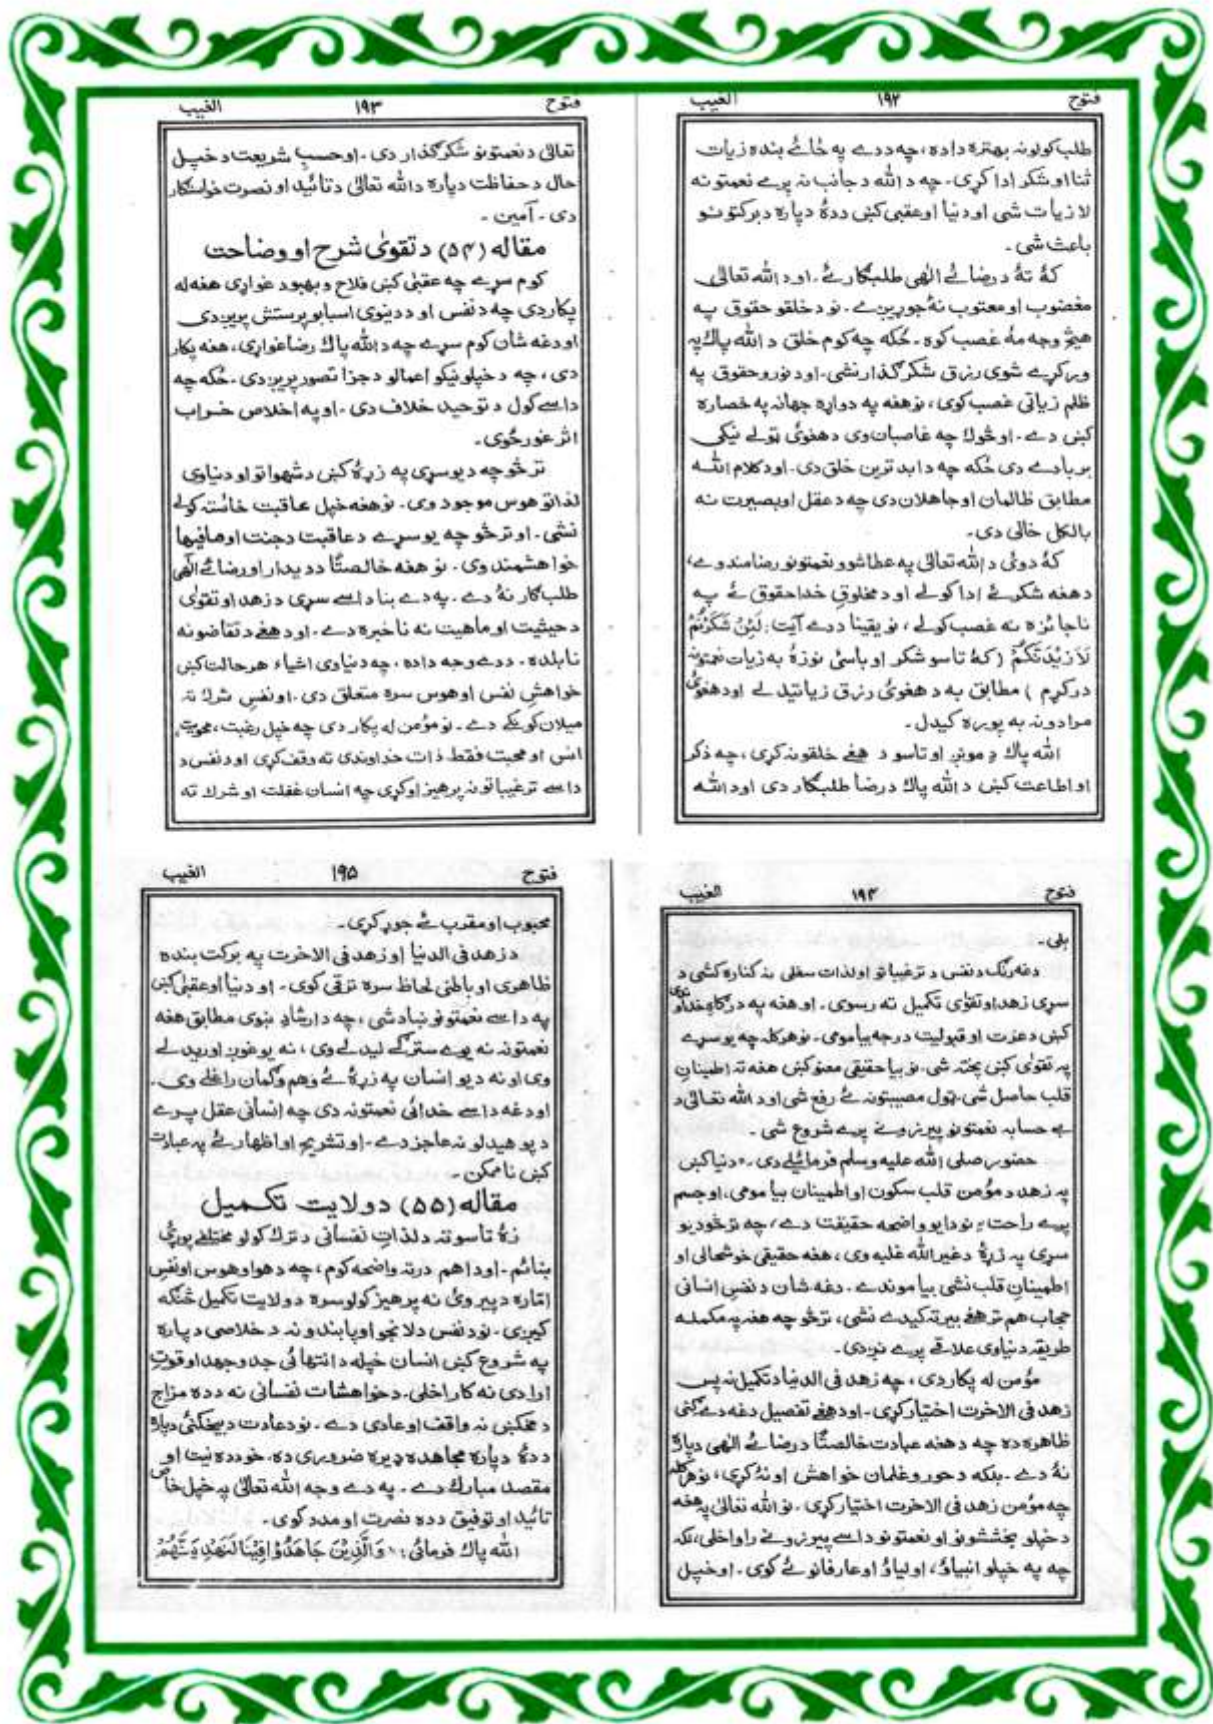 فتوح ۱۹۲ الغيب
طلب کولو نه بهتره داده، چه ددے په ځائے بنده زيات
ثنا او شکر ادا کړی۔ چه د الله د جانب نه پرے نعمتونه
لا زيات شی او دنيا او عقبی کښ ددهٔ دپاره د برکتونو
باعث شی۔
کهٔ تهٔ د رضائے الٰهی طلبګار ئے۔ او د الله تعالیٰ
مغضوب او معتوب نهٔ جوړيږے۔ نو د خلقو حقوق په
هيڅ وجه مهٔ غصب کوه۔ ځکه چه کوم خلق د الله پاک په
ورکړے شوی رزق شکر ګذار نشی۔ او د نورو حقوق په
ظلم زياتی غصب کوی، نو هغه په دواړه جهانه په خساره
کښ دے۔ او څوک چه غاصبان وی د هغوئ ټولے نيکی
بربادے دی ځکه چه دا بد ترين خلق دی۔ او د کلام الله
مطابق ظالمان او جاهلان دی چه د عقل او بصيرت نه
بالکل خالی دی۔
کهٔ دوئ د الله تعالیٰ په عطا شوو نعمتونو رضامند وے،
د هغه شکر ئے ادا کولے او د مخلوقِ خدا حقوق ئے په
ناجائزه نه غصب کولے، نو يقينا ددے آيت: لَئِنْ شَكَرْتُمْ
لَاَزِيْدَنَّكُمْ (کهٔ تاسو شکر اوباسئ نو زهٔ به زيات نعمتونه
درکړم) مطابق به د هغوئ رزق زياتيدلے او د هغوئ
مرادونه به پوره کيدل۔
الله پاک دِ مونږ او تاسو د هغے خلقو نه کړی، چه ذکر
او اطاعت کښ د الله پاک د رضا طلبګار دی او د الله
فتوح ۱۹۳ الغيب
تعالیٰ د نعمتونو شکر ګذار دی۔ او حسبِ شريعت د خپل
حال د حفاظت دپاره د الله تعالیٰ د تائيد او نصرت خواستګار
دی۔ آمين۔
مقاله (۵۴) د تقوٰی شرح او وضاحت
کوم سړے چه عقبیٰ کښ فلاح و بهبود غواړی هغه له
پکار دی چه د نفس او د دينوی اسبابو پرستش پريږدی
او دغه شان کوم سړے چه د الله پاک رضا غواړی، هغه پکار
دی، چه د خپلو نيکو اعمالو د جزا تصور پريږدی۔ ځکه چه
داسے کول د توحيد خلاف دی۔ او په اخلاص خراب
اثر غورځوی۔
ترڅو چه د يو سړی په زړهٔ کښ د شهواتو او دنياوی
لذاتو هوس موجود وی۔ نو هغه خپل عاقبت خائسته کولے
نشی۔ او ترڅو چه يو سړے د عاقبت د جنت او مافيها
خواهشمند وی۔ نو هغه خالصتًا د ديدار او رضائے الٰهی
طلب ګار نهٔ دے۔ په دے بنا داسے سړی د زهد او تقوٰی
د حيثيت او ماهيت نه ناخبره دے۔ او د هغے د تقاضو نه
نابلده۔ ددے وجه داده، چه دنياوی اشياء هر حالت کښ
خواهشِ نفس او هوس سره متعلق دی۔ او نفس شرک ته
ميلان کوؤنکے دے۔ نو مؤمن له پکار دی چه خپل رغبت، محويت،
انس او محبت فقط ذات خداوندی ته وقف کړی او د نفس د
داسے ترغيباتو نه پرهيز اوکړی چه انسان غفلت او شرک ته
فتوح ۱۹۴ الغيب
بلی۔
دغه رنګ د نفس د ترغيباتو او لذات سفلی نه کناره کشی د
سړی زهد او تقوٰی تکميل ته رسوی۔ او هغه په درګاهِ خداوندی
کښ د عزت او قبوليت درجه بيا مومی۔ نو هر کله چه يو سړے
په تقوٰی کښ پخته شی۔ نو بيا حقيقی معنو کښ هغه ته اطمينانِ
قلب حاصل شی۔ ټول مصيبتونه ئے رفع شی او د الله تعالیٰ د
بے حسابه نعمتونو پيرزونے پرے شروع شی۔
حضور صلی الله عليه وسلم فرمائيلے دی۔ "دنيا کښ
په زهد د مؤمن قلب سکون او اطمينان بيا مومی، او جسم
پرے راحت" نو دا يو واضحه حقيقت دے، چه ترڅو د يو
سړی په زړهٔ د غير الله غلبه وی، هغه حقيقی خوشحالی او
اطمينانِ قلب نشی بيا موندے۔ دغه شان د نفسِ انسانی
حجاب هم تر هغے بيرته کيدے نشی، ترڅو چه هغه په مکمله
طريقه دنياوی علاقے پرے نږدی۔
مؤمن له پکار دی، چه زهد فی الدنيا د تکميل نه پس
زهد فی الاخرت اختيار کړی۔ او د هغے تفصيل دغه دے کښ
ظاهره ده چه د هغه عبادت خالصتًا د رضائے الٰهی دپاره
نهٔ دے۔ بلکه د حور و غلمان خواهش اونهٔ کړی، نو هر کله
چه مؤمن زهد فی الاخرت اختيار کړی۔ نو الله تعالیٰ په هغه
د خپلو بخششونو او نعمتونو داسے پيرزونے راواخلی، لکه
چه په خپلو انبياؤ، اولياؤ او عارفانو ئے کوی۔ او خپل
فتوح ۱۹۵ الغيب
محبوب او مقرب ئے جوړ کړی۔
د زهد فی الدنيا او زهد فی الاخرت په برکت بنده
ظاهری او باطنی لحاظ سره ترقی کوی۔ او دنيا او عقبیٰ کښ
په داسے نعمتونو ښاد شی، چه د ارشادِ نبوی مطابق هغه
نعمتونه نه يوے سترګے ليدلے وی، نه يو غوږ اوريدلے
وی او نه د يو انسان په زړهٔ ئے وهم و ګمان راغلے وی۔
او دغه داسے خدائی نعمتونه دی چه انسانی عقل پرے
د پوهيدلو نه عاجز دے۔ او تشريح او اظهار ئے په عبارت
کښ ناممکن۔
مقاله (۵۵) د ولايت تکميل
زهٔ تاسو ته د لذاتِ نفسانی د ترک کولو مختلفے پوړئ
ښائم۔ او دا هم درته واضحه کوم، چه د هوا و هوس او نفسِ
امّاره د پيروئ نه پرهيز کولو سره د ولايت تکميل څنګه
کيږی۔ نو د نفس د لانجو او پابندو نه د خلاصی دپاره
په شروع کښ انسان خپله د انتهائی جد و جهد او قوتِ
ارادی نه کار اخلی۔ د خواهشات نفسانی نه دده مزاج
د مخکښ نه واقف او عادی دے۔ نو د عادت د بيخکنئ دپاره
ددهٔ دپاره مجاهده ډيره ضروری ده۔ خو دده نيت او
مقصد مبارک دے۔ په دے وجه الله تعالیٰ په خپل خاص
تائيد او توفيق دده نصرت او مدد کوی۔
الله پاک فرمائی: "وَالَّذِيْنَ جَاهَدُوْا فِيْنَا لَنَهْدِيَنَّهُمْ